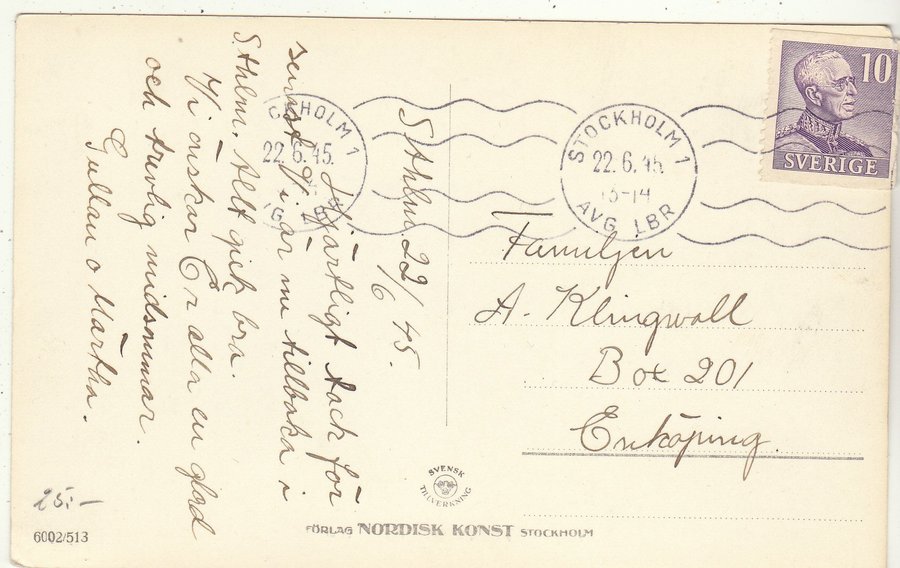 Sthlm 22/6 45.
Hjärtligt tack för
senast. Vi är nu tillbaka i
Sthlm. Allt gick bra.
Vi önskar Er alla en glad
och trevlig midsommar.
Gullan o Märtha.
STOCKHOLM 1
22.6.45.
AVG LBR
STOCKHOLM 1
22.6.45.
13-14
AVG LBR
10
SVERIGE
Familjen
A. Klingwall
Box 201
Enköping.
SVENSK
TILLVERKNING
25:-
6002/513
FÖRLAG NORDISK KONST STOCKHOLM